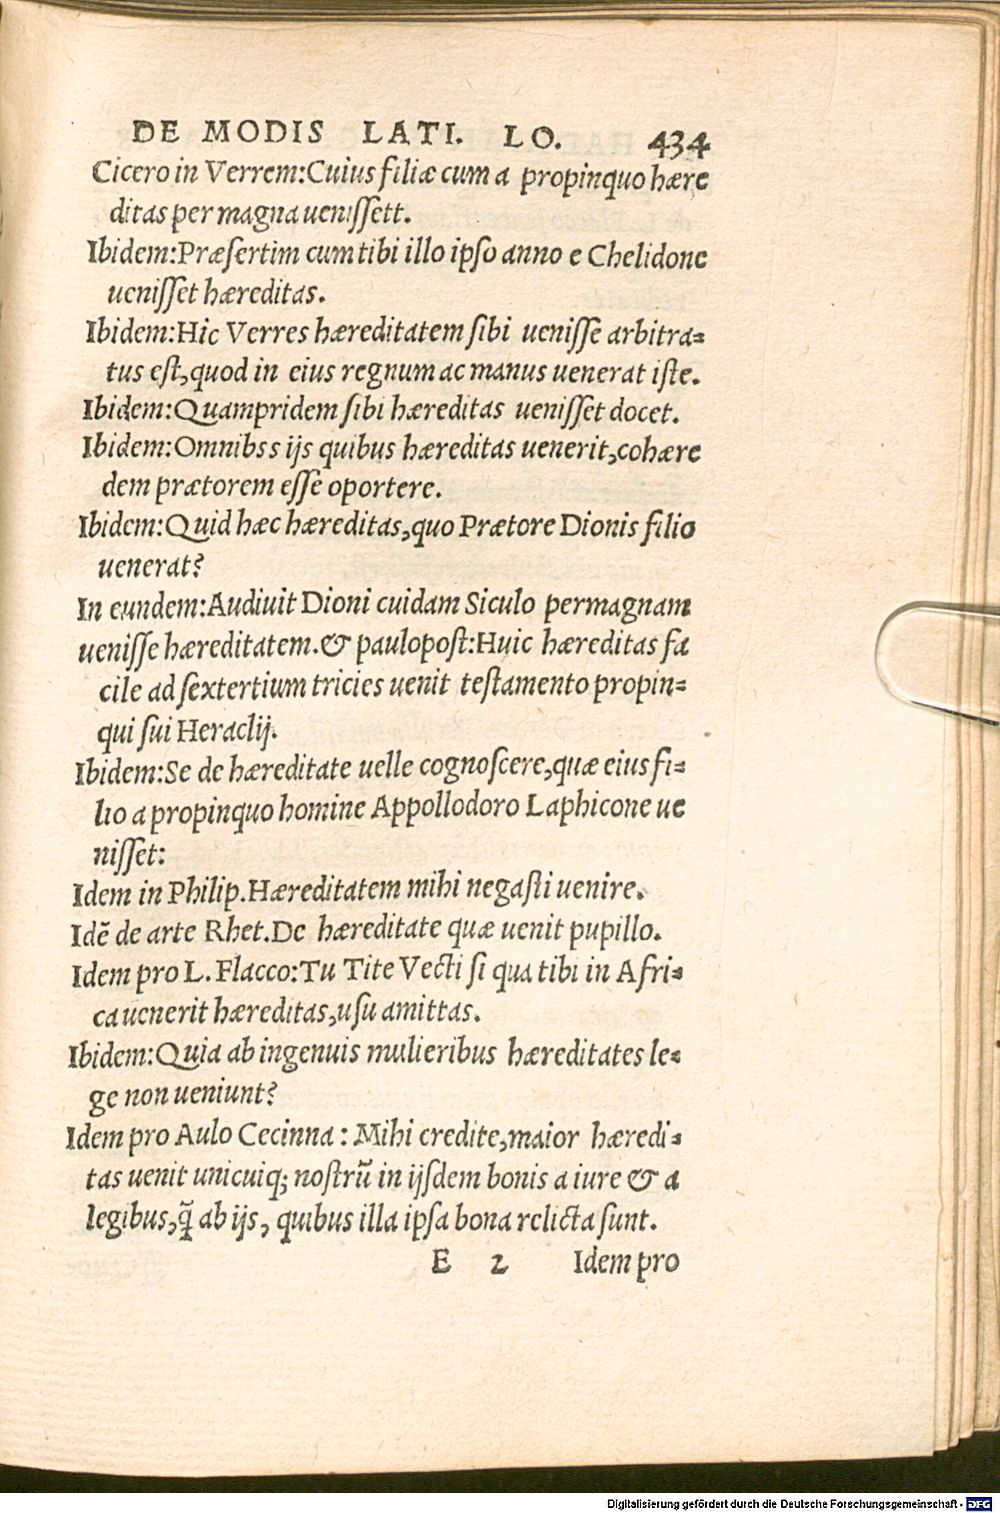 DE MODIS LATI. LO. 434
Cicero in Verrem:Cuius filiæ cum a propinquo hære
ditas per magna uenissett.
Ibidem:Præsertim cum tibi illo ipso anno e Chelidone
uenisset hæreditas.
Ibidem:Hic Verres hæreditatem sibi uenisse arbitra=
tus est,quod in eius regnum ac manus uenerat iste.
Ibidem:Quampridem sibi hæreditas uenisset docet.
Ibidem:Omnibss ijs quibus hæreditas uenerit,cohære
dem prætorem esse oportere.
Ibidem:Quid hæc hæreditas,quo Prætore Dionis filio
uenerat?
In eundem:Audiuit Dioni cuidam Siculo permagnam
uenisse hæreditatem.& paulopost:Huic hæreditas fa
cile ad sextertium tricies uenit testamento propin=
qui sui Heraclij.
Ibidem:Se de hæreditate uelle cognoscere,quæ eius fi=
lio a propinquo homine Appollodoro Laphicone ue
nisset:
Idem in Philip.Hæreditatem mihi negasti uenire.
Idẽ de arte Rhet.De hæreditate quæ uenit pupillo.
Idem pro L. Flacco:Tu Tite Vecti si qua tibi in Afri=
ca uenerit hæreditas,usu amittas.
Ibidem:Quia ab ingenuis mulieribus hæreditates le=
ge non ueniunt?
Idem pro Aulo Cecinna : Mihi credite,maior hæredi=
tas uenit unicuiq; nostrũ in ijsdem bonis a iure & a
legibus,q̃ ab ijs, quibus illa ipsa bona relicta sunt.
E 2 Idem pro
Digitalisierung gefördert durch die Deutsche Forschungsgemeinschaft - DFG